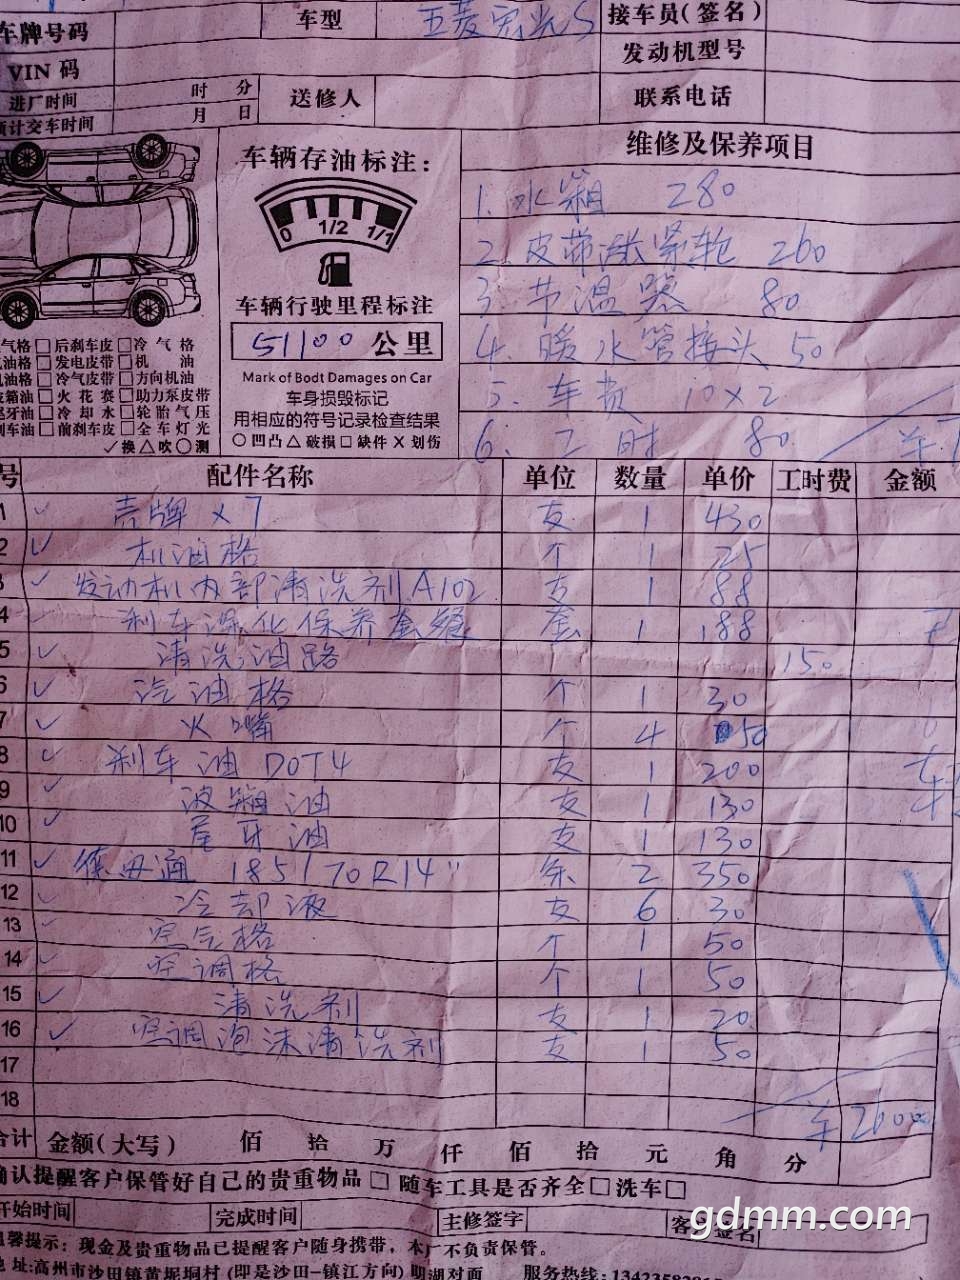 车牌号码 车型 五菱宏光S 接车员(签名)
VIN 码 发动机型号
进厂时间 时 分 送修人 联系电话
预计交车时间 月 日
车辆存油标注: 维修及保养项目
0 1/2 1/1
1. 水箱 280
2. 皮带涨紧轮 260
3. 节温器 80
4. 暖水管接头 50
5. 车损 10×2
6. 工时 80
车辆行驶里程标注
51100 公里
Mark of Bodt Damages on Car
车身损毁标记
用相应的符号记录检查结果
○凹凸△破损□缺件X划伤
气格□后刹车皮□冷气格
油格□发电皮带□机油
油格□冷气皮带□方向机油
波箱油□火花赛□助力泵皮带
尾牙油□冷却水□轮胎气压
刹车油□前刹车皮□全车灯光
✓换△吹○测
号 配件名称 单位 数量 单价 工时费 金额
1 ✓ 壳牌×7 支 1 430
2 ✓ 机油格 个 1 25
3 ✓ 发动机内部清洗剂A102 支 1 88
4 刹车深化保养套餐 套 1 188
5 ✓ 清洗油路 150
6 ✓ 汽油格 个 1 30
7 ✓ 火嘴 个 4 50
8 ✓ 刹车油 DOT4 支 1 200
9 ✓ 波箱油 支 1 130
10 ✓ 尾牙油 支 1 130
11 ✓ 185/70R14" 条 2 350
12 ✓ 冷却液 支 6 30
13 ✓ 空气格 个 1 50
14 ✓ 空调格 个 1 50
15 ✓ 清洗剂 支 1 20
16 ✓ 空调泡沫清洗剂 支 1 50
17
18
合计 金额(大写) 佰 拾 万 仟 佰 拾 元 角 分
确认提醒客户保管好自己的贵重物品□ 随车工具是否齐全□洗车□
开始时间 完成时间 主修签字 客户签名
温馨提示: 现金及贵重物品已提醒客户随身携带，本厂不负责保管。
地址:高州市沙田镇黄坭垌村 (即是沙田-镇江方向) 明湖对面 服务热线:
gdmm.com